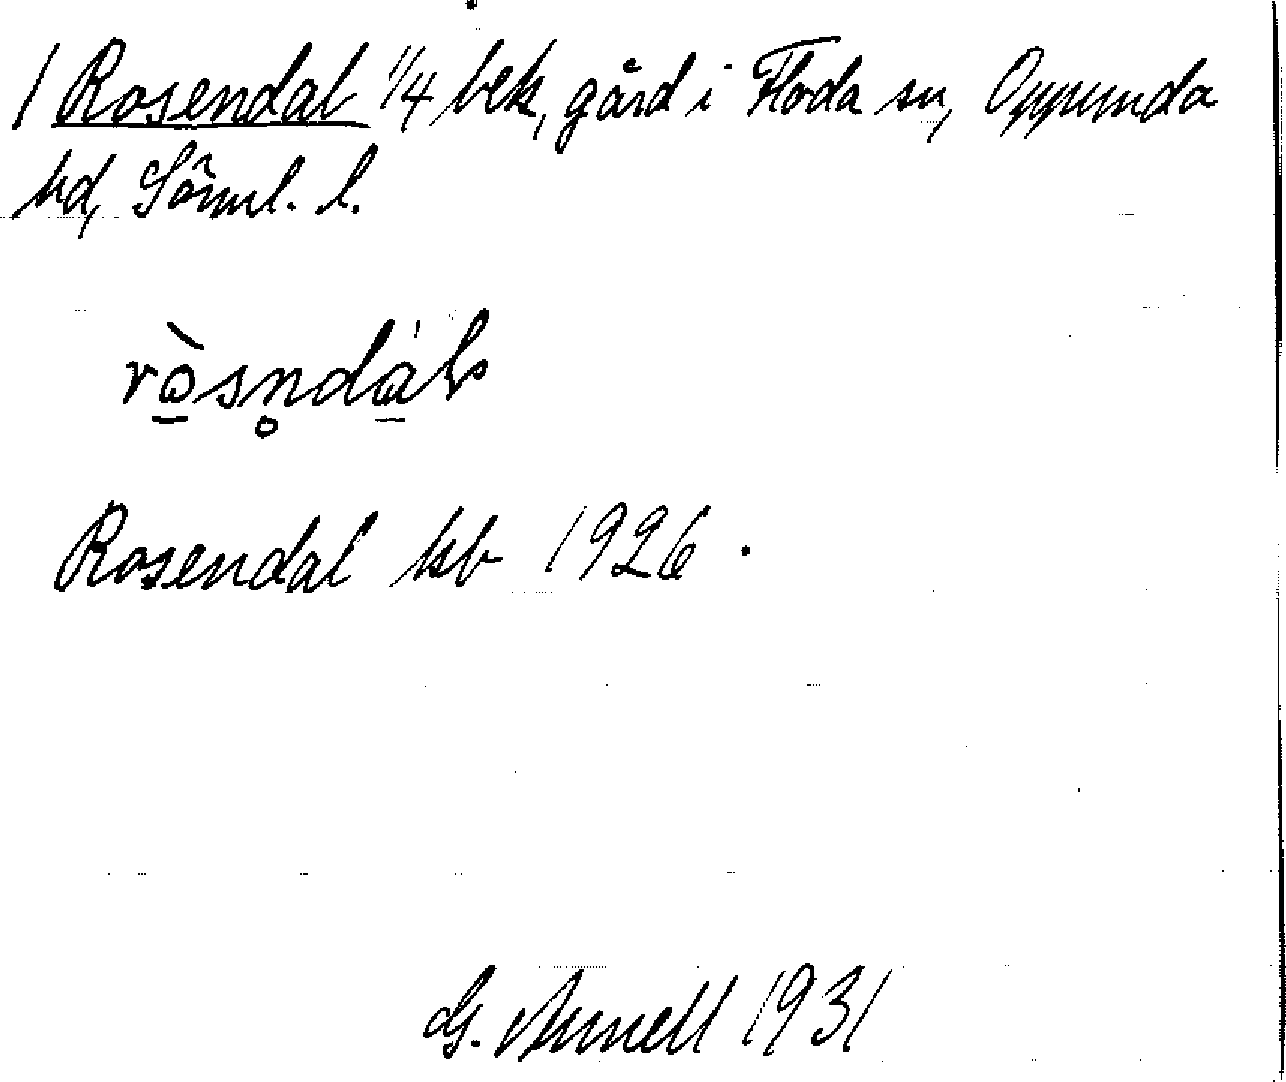 / Rosendal 1/4 bek, gård i Floda sn, Oppunda
hd, Sörml. l.
rò̠sn̥dá̠l
Rosendal kb 1926.
G. Annell 1931